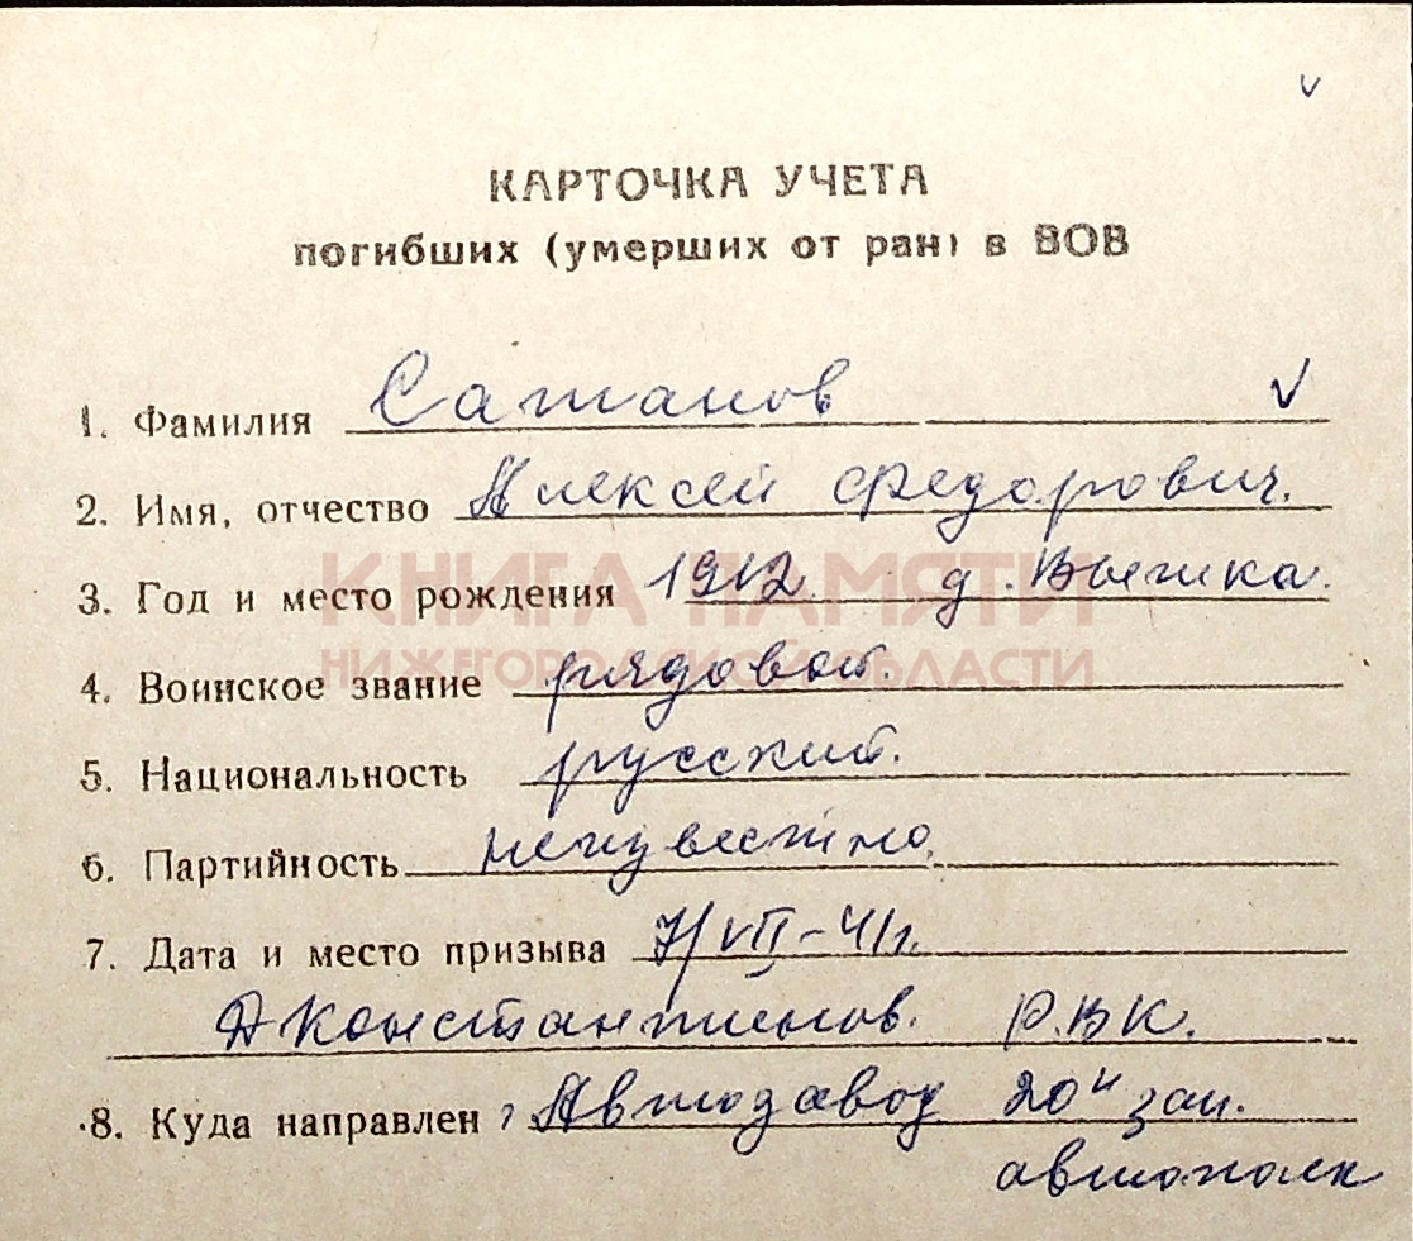 КАРТОЧКА УЧЕТА
погибших (умерших от ран) в ВОВ
1. Фамилия Сатанов
2. Имя, отчество Алексей Федорович.
3. Год и место рождения 1912 д.
КНИГА ПАМЯТИ
НИЖЕГОРОДСКОЙ ОБЛАСТИ
4. Воинское звание рядовой.
5. Национальность русский.
6. Партийность неизвестно.
7. Дата и место призыва 7/VII-41г.
Д Константинов. Р.В.К.
8. Куда направлен г. Автозавод 20й зап.
автополк